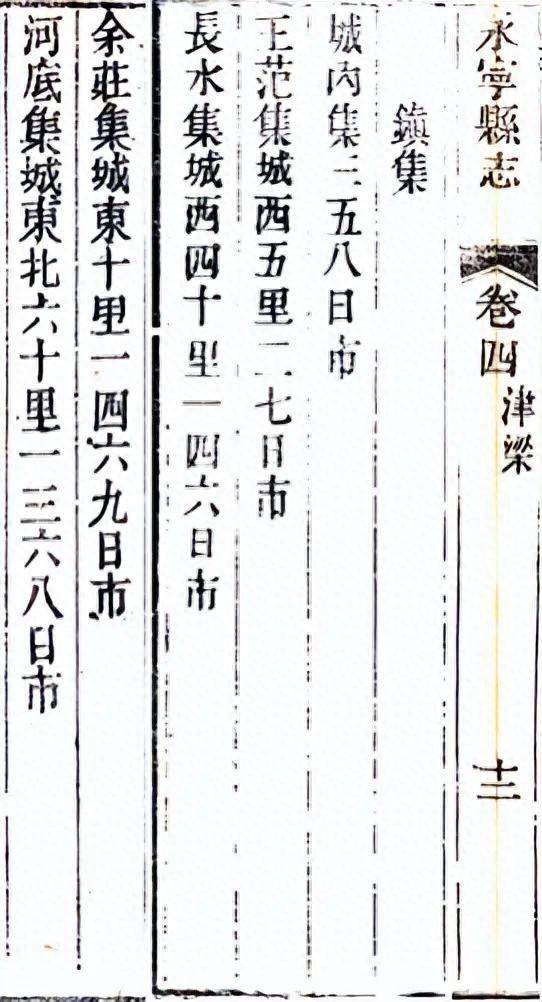 永寧縣志
卷四
津梁
十三
鎮集
城內集三五八日市
王范集城西五里二七日市
長水集城西四十里一四六日市
余莊集城東十里一四六九日市
河底集城東北六十里一三六八日市